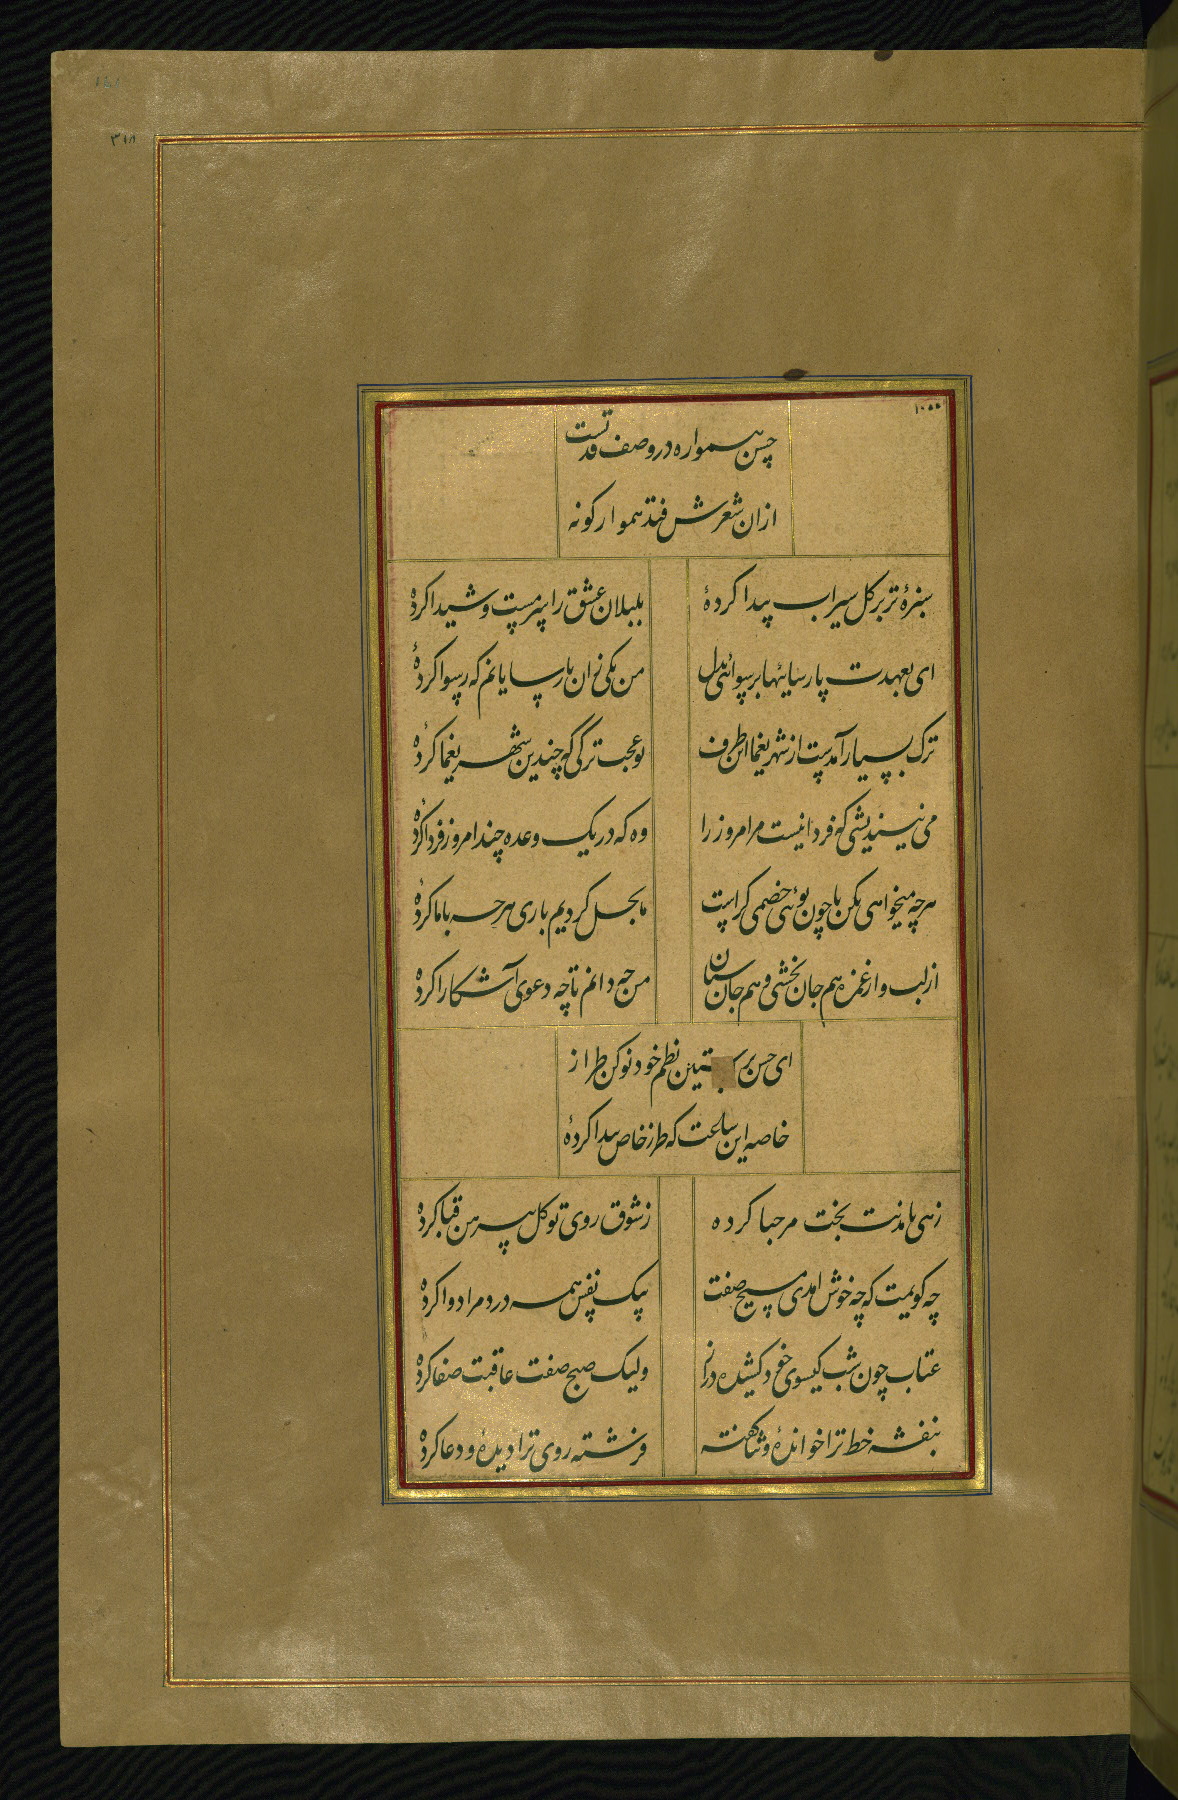 ٣١٨
حسن همواره در وصف قدتست
ازان شعرش فتد هموار گونه
سبزهٔ تر بر گل سیراب پیدا کردهٔ
بلبلان عشق را سرمست و شیدا کردهٔ
ای بعهدت پارسائیها برسوائی بدل
من یکی زان پارسایانم که رسوا کردهٔ
ترک بسیار آمدست از شهر یغما این طرف
بوعجب ترکی که چندین شهر یغما کردهٔ
می نیندیشی که فردا نیست مر امروز را
وه که در یک وعده چند امروز فردا کردهٔ
هرچه میخواهی بکن با چون توئی خصمی کراست
ما بحل کردیم باری هرچه با ما کردهٔ
از لب و از غمزه هم جان بخشی و هم جان ستان
من چه دانم تا چه دعوی آشکارا کردهٔ
ای حسن بر آستین نظم خود نو کن طراز
خاصه این ساعت که طرز خاص پیدا کردهٔ
زهی بامدنت بخت مرحبا کرده
ز شوق روی تو گل پیرهن قبا کرده
چه گویمت که چه خوش آمدی مسیح صفت
بیک نفس همه درد مرا دوا کرده
عتاب چون شب گیسوی خود کشیده دراز
ولیک صبح صفت عاقبت صفا کرده
بنفشه خط ترا خوانده و ثنا گفته
فرشته روی ترا دیده و دعا کرده